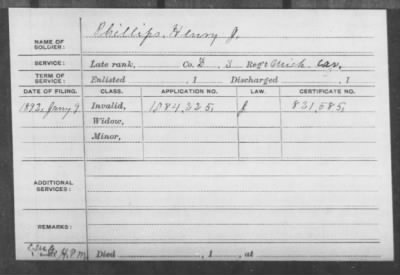 NAME OF SOLDIER: Phillips, Henry J.
SERVICE: Late rank, Co. D, 3 Reg't Mich. Cav.
TERM OF SERVICE: Enlisted , 1 Discharged , 1
DATE OF FILING. CLASS. APPLICATION NO. LAW. CERTIFICATE NO.
1892, Jany 9 Invalid, 1084,225, J 831,585,
Widow,
Minor,
ADDITIONAL SERVICES:
REMARKS:
Died , 1 , at